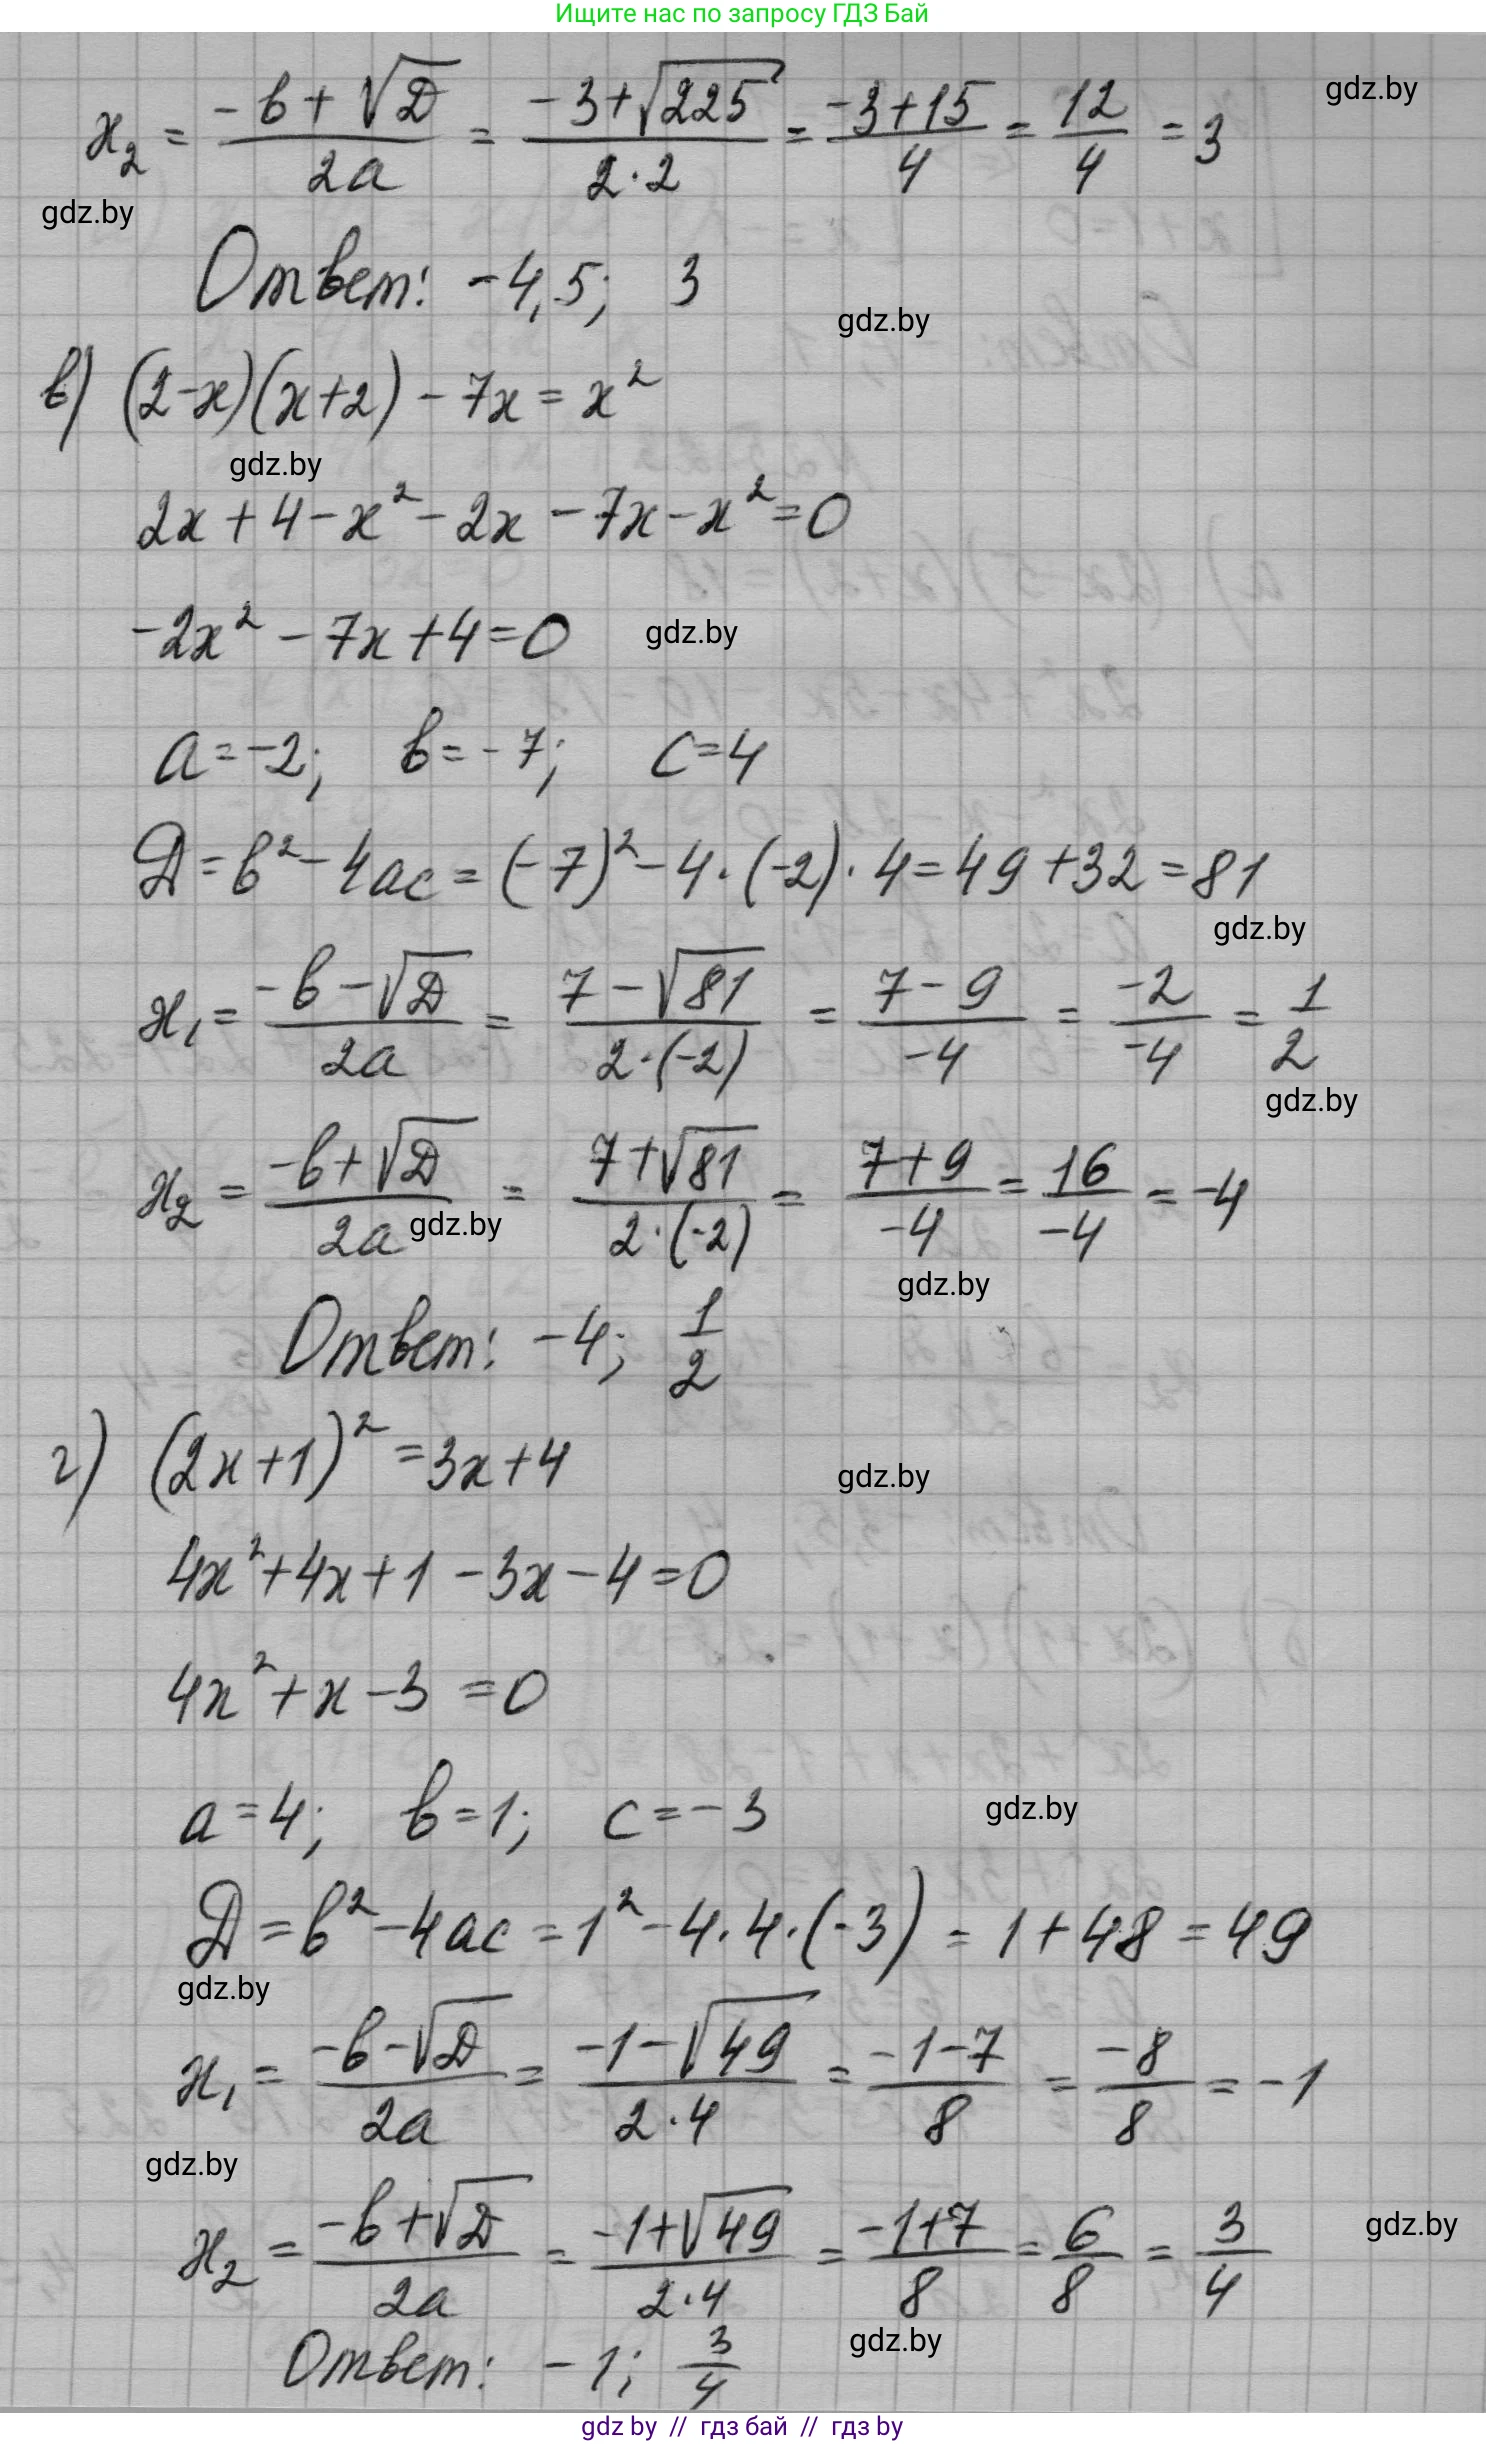 Ищите нас по запросу ГДЗ Бай
gdz.by
x₂ = (-b + √D)/(2a) = (-3+√225)/(2·2) = (-3+15)/4 = 12/4 = 3
gdz.by
Ответ: -4,5; 3
gdz.by
в) (2-x)(x+2) - 7x = x²
gdz.by
2x + 4 - x² - 2x - 7x - x² = 0
-2x² - 7x + 4 = 0
gdz.by
a = -2; b = -7; c = 4
D = b² - 4ac = (-7)² - 4·(-2)·4 = 49 + 32 = 81
gdz.by
x₁ = (-b - √D)/(2a) = (7 - √81)/(2·(-2)) = (7 - 9)/(-4) = (-2)/(-4) = 1/2
gdz.by
x₂ = (-b + √D)/(2a) = (7 + √81)/(2·(-2)) = (7+9)/(-4) = 16/(-4) = -4
gdz.by
gdz.by
Ответ: -4; 1/2
г) (2x+1)² = 3x+4
gdz.by
4x² + 4x + 1 - 3x - 4 = 0
4x² + x - 3 = 0
a = 4; b = 1; c = -3
gdz.by
D = b² - 4ac = 1² - 4·4·(-3) = 1 + 48 = 49
gdz.by
x₁ = (-b - √D)/(2a) = (-1 - √49)/(2·4) = (-1-7)/8 = (-8)/8 = -1
gdz.by
x₂ = (-b + √D)/(2a) = (-1+√49)/(2·4) = (-1+7)/8 = 6/8 = 3/4
gdz.by
gdz.by
Ответ: -1; 3/4
gdz by // гдз бай // гдз by